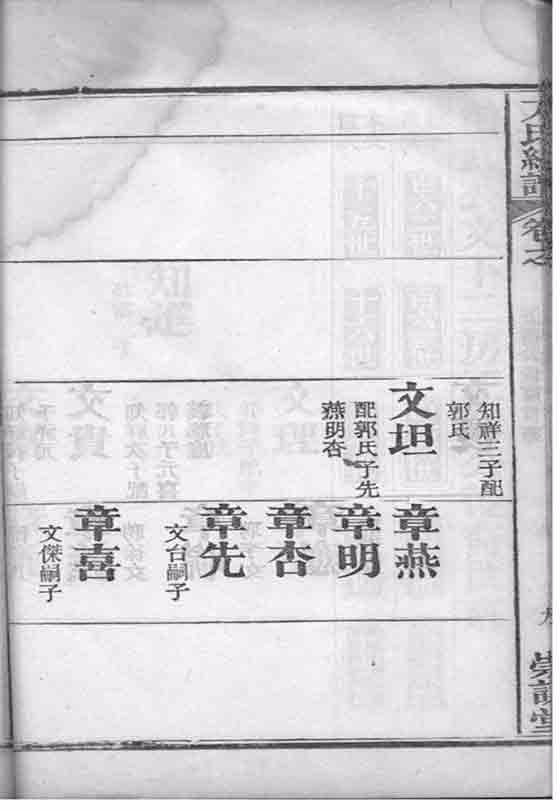 卷之
知祥三子配
郭氏
文坦
配郭氏子先
燕明杏
章燕
章明
章杏
章先
文台嗣子
章喜
文傑嗣子